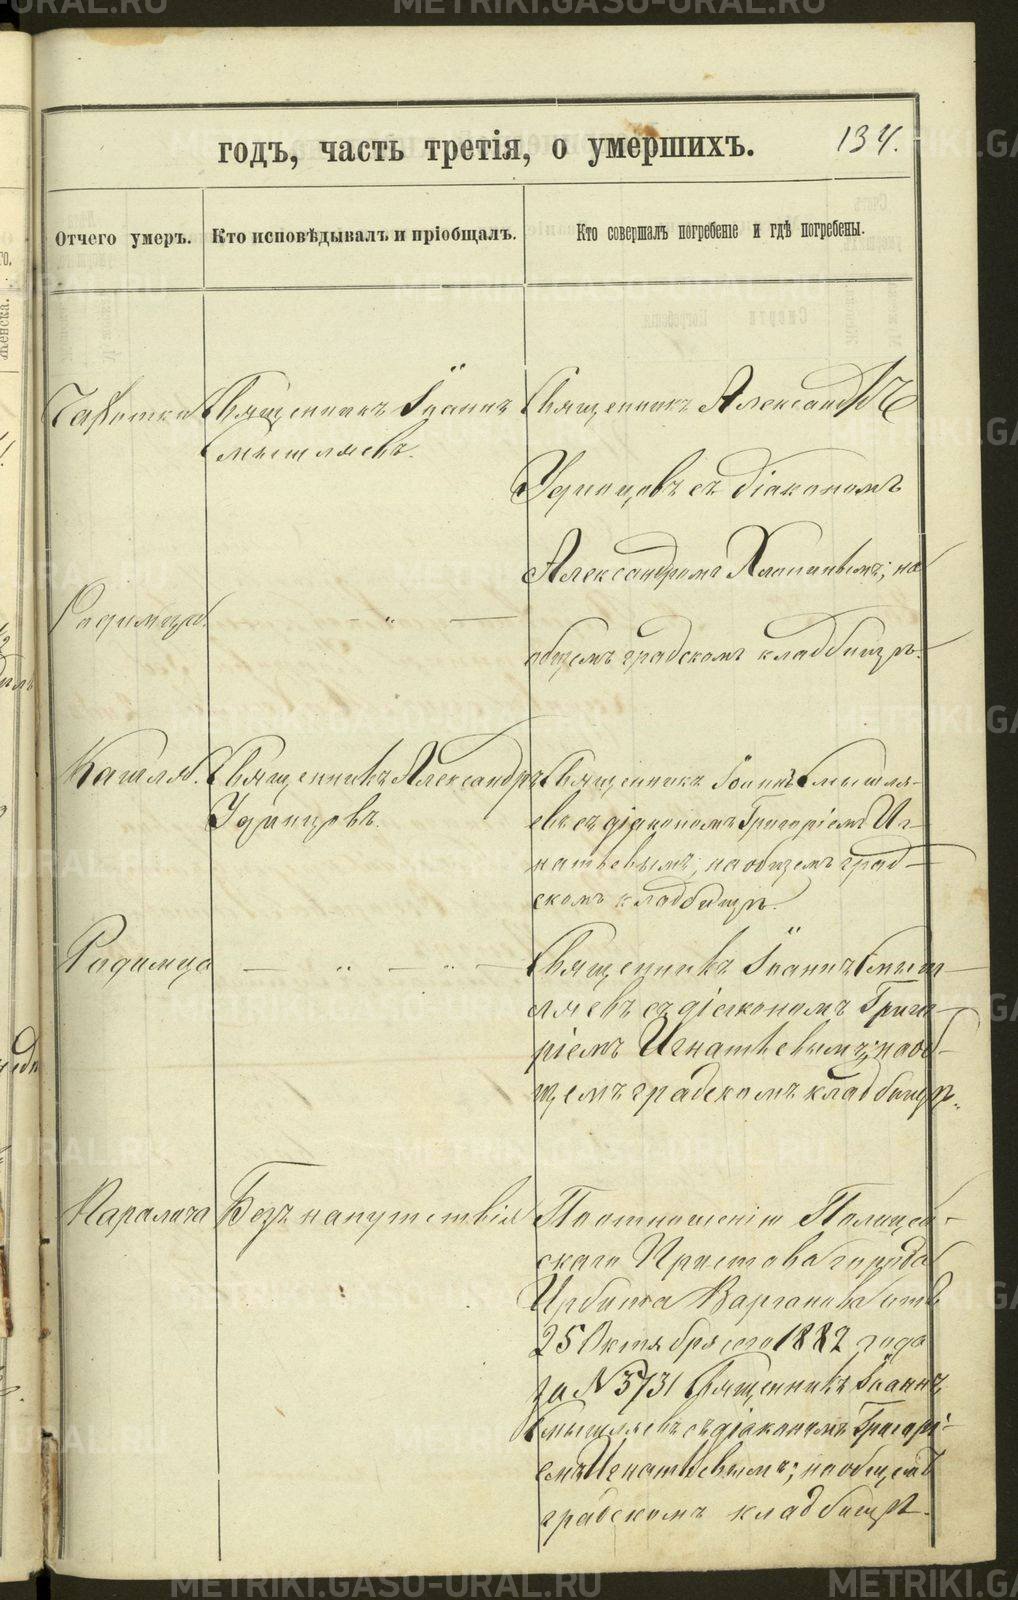 годъ, часть третія, о умершихъ.
134.
Отчего умеръ.
Кто исповѣдывалъ и пріобщалъ.
Кто совершалъ погребеніе и гдѣ погребены.
Чахотки
Священникъ Іоаннъ
Смышляевъ.
Священникъ Александръ
Удинцовъ съ діакономъ
Александромъ на
общемъ градскомъ кладбищѣ.
Родимца.
— „ —
Кашля.
Священникъ Александръ
Удинцовъ.
Священникъ Іоаннъ Смышля-
евъ съ діакономъ Григоріемъ Иг-
натьевымъ; на общемъ град-
скомъ кладбищѣ.
Родимца
— „ — „ —
Священникъ Іоаннъ Смыш-
ляевъ съ діакономъ Григо-
ріемъ Игнатьевымъ; на об-
щемъ градскомъ кладбищѣ.
Паралича
Безъ напутствія
По отношенію Полицей-
скаго Пристава города
Ирбита Варганова отъ
25 Октября сего 1882 года
за № 5731 Священникъ Іоаннъ
Смышляевъ съ діакономъ Григорі-
емъ Игнатьевымъ; на общемъ
градскомъ кладбищѣ.
METRIKI.GASO-URAL.RU